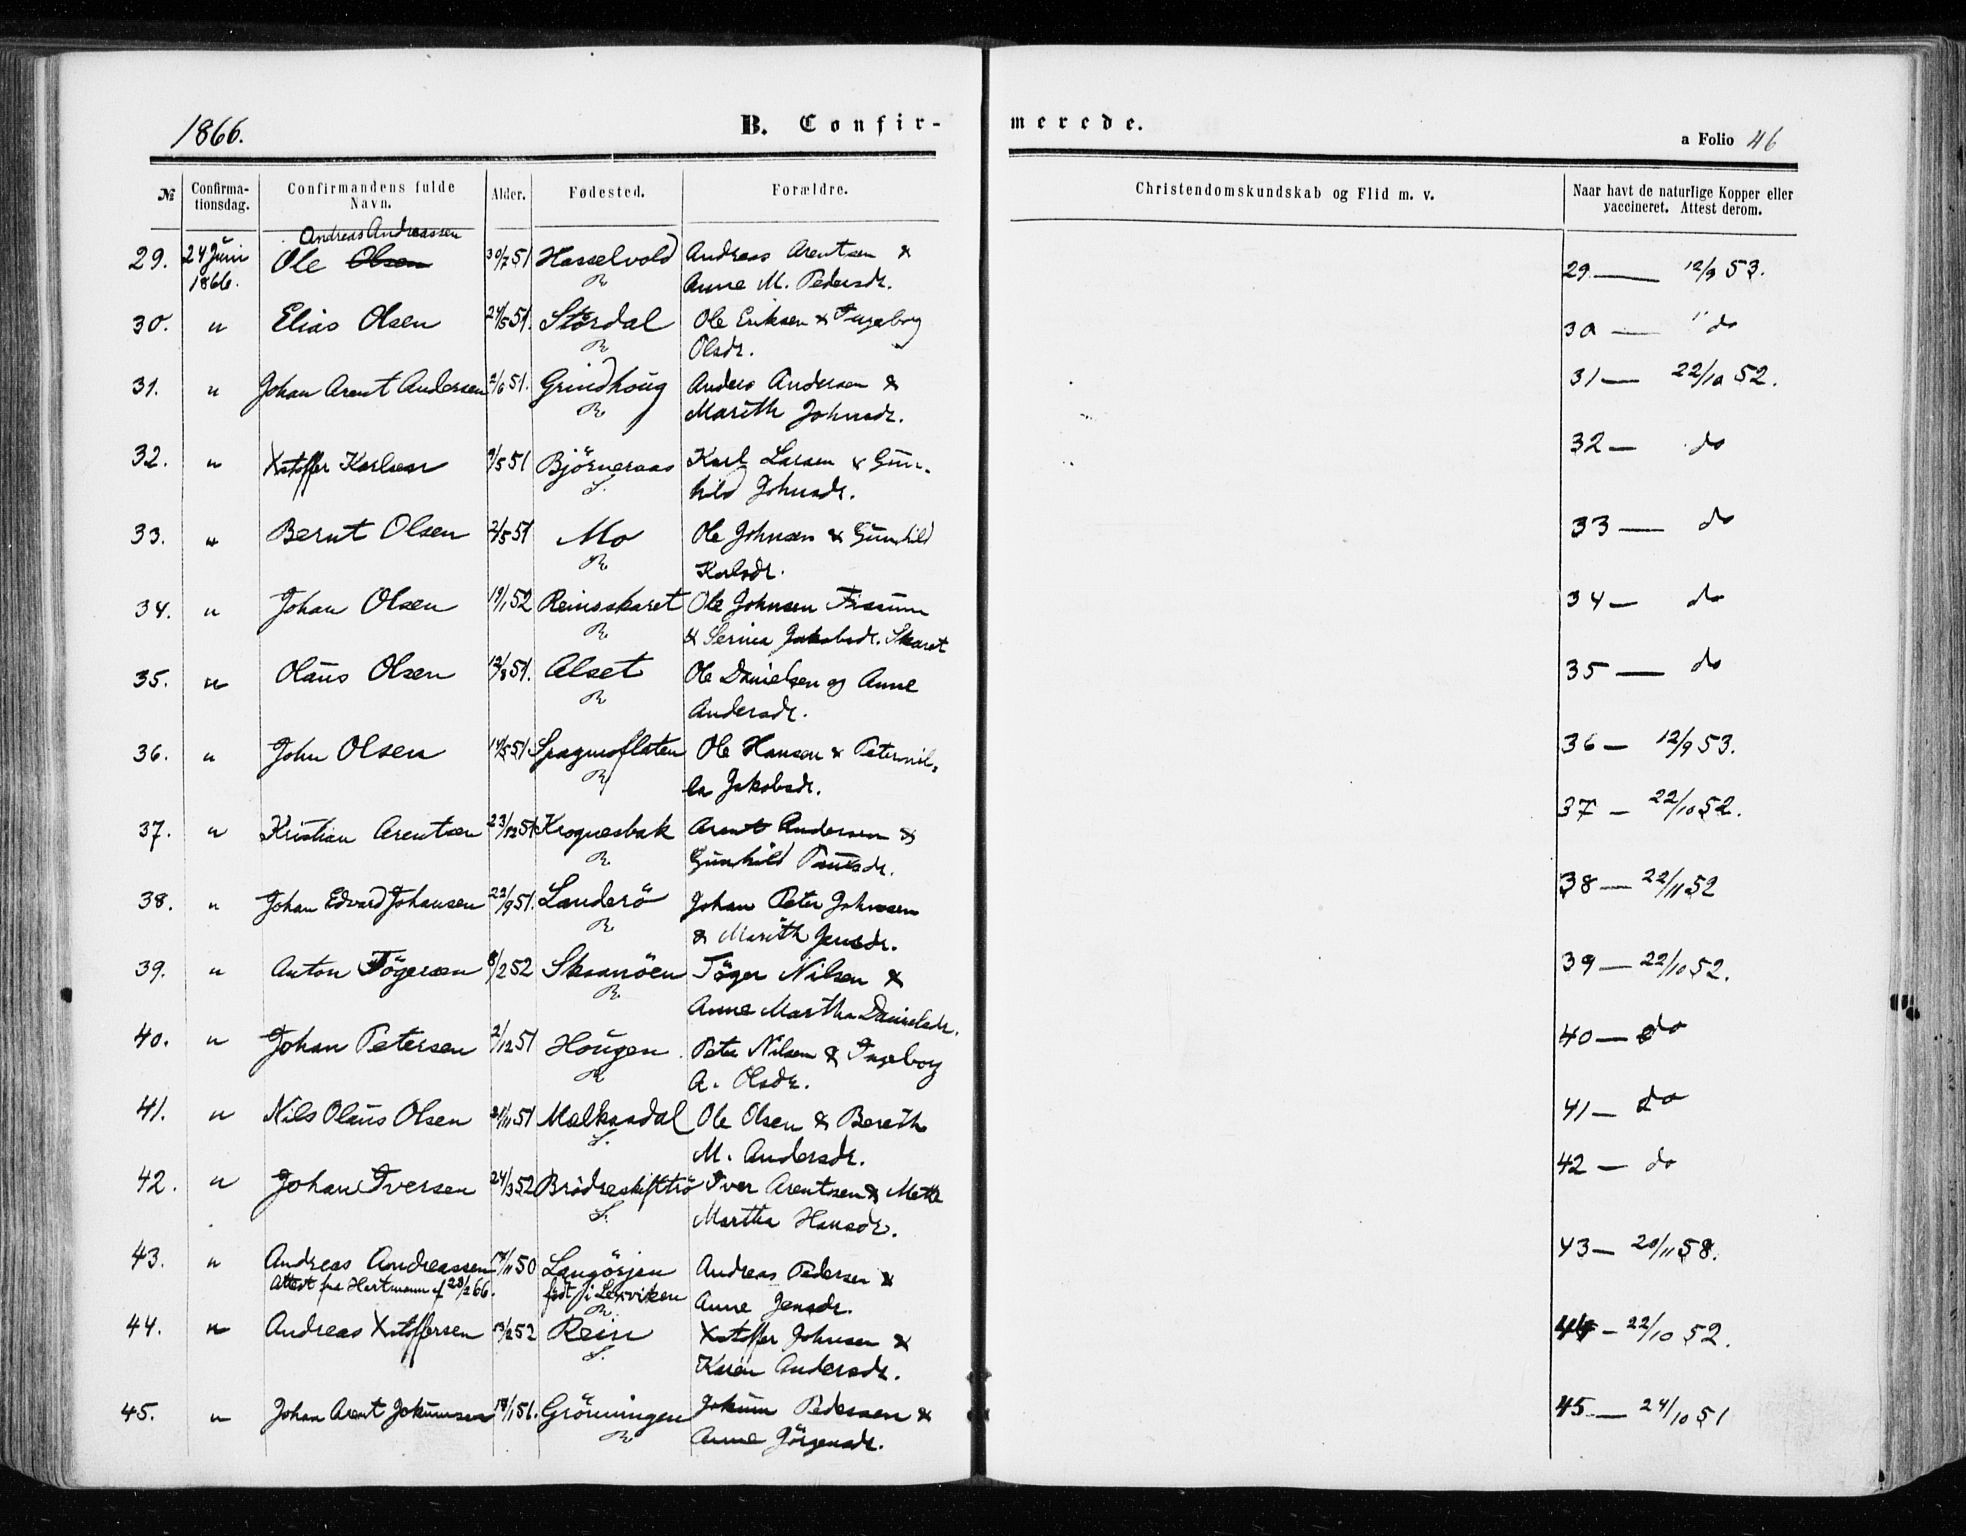 1866. B. Confir- merede. a Folio 46
№ Confirma-tionsdag. Confirmandens fulde Navn. Alder. Fødested. Forældre. Christendomskundskab og Flid m. v. Naar havt de naturlige Kopper eller vaccineret. Attest derom.
Andreas Andreassen
29. 24 Juni Ole Olsen 30/7 51 Hasselvold Andreas Arentsen & 29 — 12/9 53.
1866. R. Anne M. Pedersdr.
30. " Elias Olsen 24/5 51. Stördal Ole Eriksen & Ingeborg 30 — " do
R. Olsdr.
31. " Johan Arent Andersen 2/6 51. Grindhoug Anders Andersen & 31 — 22/10 52.
R. Marith Johnsdr.
32. " Xstoffer Karlsen 9/5 51 Björneraas Karl Larsen & Gun- 32 — do
L. hild Johnsdr.
33. " Bernt Olsen 2/5 51 Mo Ole Johnsen & Gunhild 33 — do
R. Karlsdr.
34. " Johan Olsen 19/1 52 Reinsskaret Ole Johnsen Fissum 34 — do
R. & Serina Jakobsdr. Skaret
35. " Olaus Olsen 12/8 51. Alset Ole Danielsen og Anne 35 — do
R. Andersdr.
36. " John Olsen 14/5 51 Ole Hansen & Peternil- 36 — 12/9 53.
R. la Jakobsdr.
37. " Kristian Arentsen 23/12 51 Krognesbak Arent Andersen & 37 — 22/10 52.
R. Gunhild Paulsdr.
38. " Johan Edvard Johansen 22/9 51. Landerö Johan Peter Johnsen 38 — 22/11 52
R. & Marith Jensdr.
39. " Anton Tögersen 8/2 52 Skaanöen Töger Nilsen & 39 — 22/10 52.
R. Anne Martha Danielsdr.
40. " Johan Petersen 2/12 51 Hougen Peter Nilsen & Ingeborg 40 — do
R A. Olsdr.
41. " Nils Olaus Olsen 21/11 51 Mælkandal Ole Olsen & Bereth 41 — do
L. M. Andersdr.
42. " Johan Iversen 24/3 52 Brödreskifttrö Iver Arentsen & Mette 42 — do
L. Martha Hansdr.
43. " Andreas Andreassen 17/11 50 Langörjen Andreas Pedersen & 43 — 20/11 58.
Attest fra Hartmann af 28/2 66. født i Lexviken Anne Jensdr.
R.
44. " Andreas Xstoffersen 13/2 52 Rein Xstoffer Johnsen & 44 — 22/10 52.
L. Karen Andersdr.
45. " Johan Arent Jokumsen 18/1 51. Grönningen Jokum Pedersen & 45 — 24/10 51
R Anne Jörgensdr.